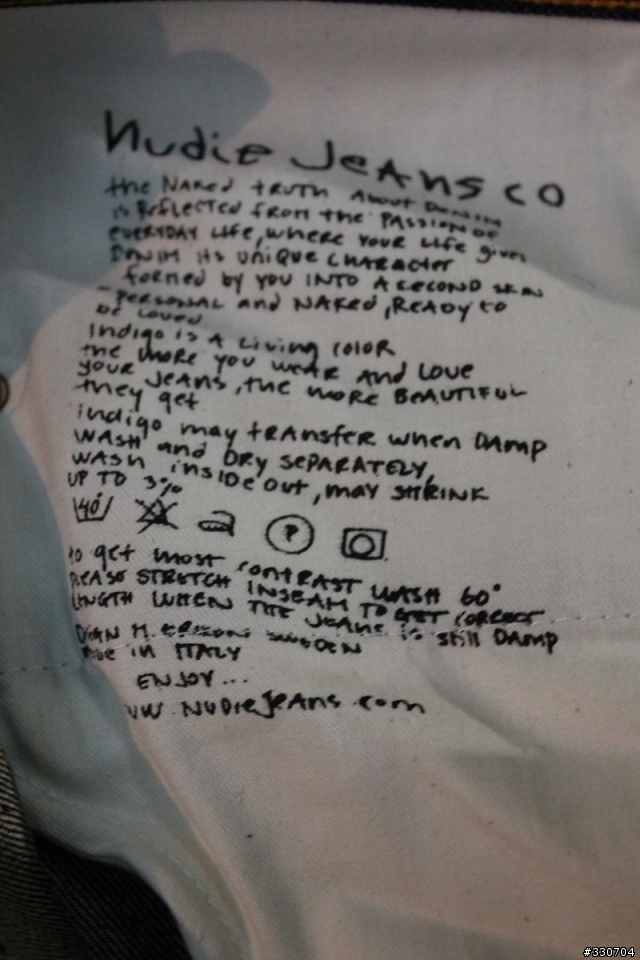 Nudie Jeans co
the NAKED tRUTH About DENIM
is ReflECTED from the PASSION of
EVERYDAY Life, where YOUR Life gives
DENIM its UNIQUE CHARACTER
formed by YOU INTO A SECOND SKIN
- PERSONAL and NAKED, READY to
be LOVED
Indigo is A Living COLOR
the more you WEAR AND LOVE
your JEANS, the more BEAUTIFUL
they get
indigo may tRANSFER when DAMP
WASH and DRY SEPARATELY,
WASH insIDE out, may SHRINK
UP TO 3%
40°
P
to get most CONTRAST WASH 60°
PLEASE STRETCH INSEAM TO GET CORRECT
LENGTH WHEN THE JEANS is still DAMP
M. SWEDEN
in ITALY
ENJOY...
NUDIEJEANS.com
#330704